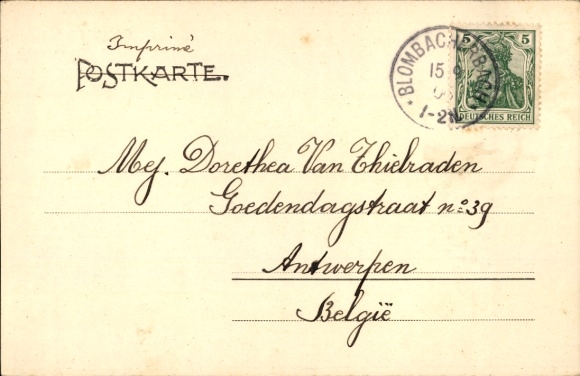 Imprimé
POSTKARTE.
BLOMBACHERBACH
15 9
1-2N
5 5
DEUTSCHES REICH
Mej. Dorethea Van Thielraden
Goedendagstraat no 39
Antwerpen
België